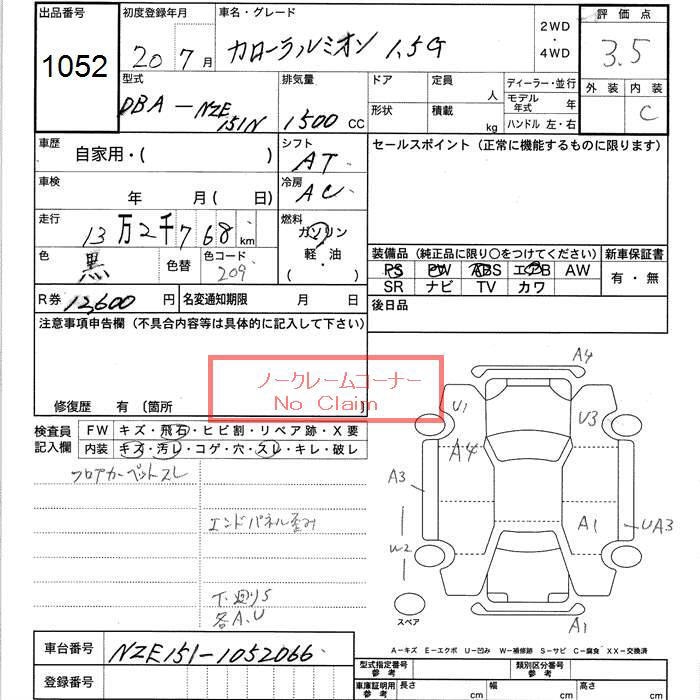 出品番号 初度登録年月 車名・グレード 2WD ・ 4WD 評価点
1052 20 7月 カローラルミオン 1.5G 3.5
型式 排気量 ドア 定員 人 ディーラー・並行 外装 内装
DBA-NZE151N 1500 CC 形状 積載 kg モデル年式 年 C
ハンドル 左・右
車歴 自家用・( ) シフト AT セールスポイント(正常に機能するものに限ります)
車検 年 月 (日) 冷房 AC
走行 13万2千768km 燃料 ガソリン 軽・油 ( )
色 黒 色替 色コード 209 装備品(純正品に限り○をつけてください) 新車保証書
PS PW ABS エアB AW 有・無
SR ナビ TV カワ
R券 12,600円 名変通知期限 月 日 後日品
注意事項申告欄(不具合内容等は具体的に記入して下さい)
ノークレームコーナー
No Claim
修復歴 有 〔箇所 〕
検査員記入欄 FW キズ・飛石・ヒビ割・リペア跡・X要
内装 キズ・汚レ・コゲ・穴・スレ・キレ・破レ
フロアカーペットスレ
エンドパネル歪み
下廻りS
各A.U
A4
U1
U3
A4
A3
A1
UA3
W2
スペア
A1
A-キズ E-エクボ U-凹み W-補修跡 S-サビ C-腐食 XX-交換済
車台番号 NZE151-1052066
登録番号
型式指定番号 参考 類別区分番号 参考
車庫証明用 参考 長さ cm 幅 cm 高さ cm